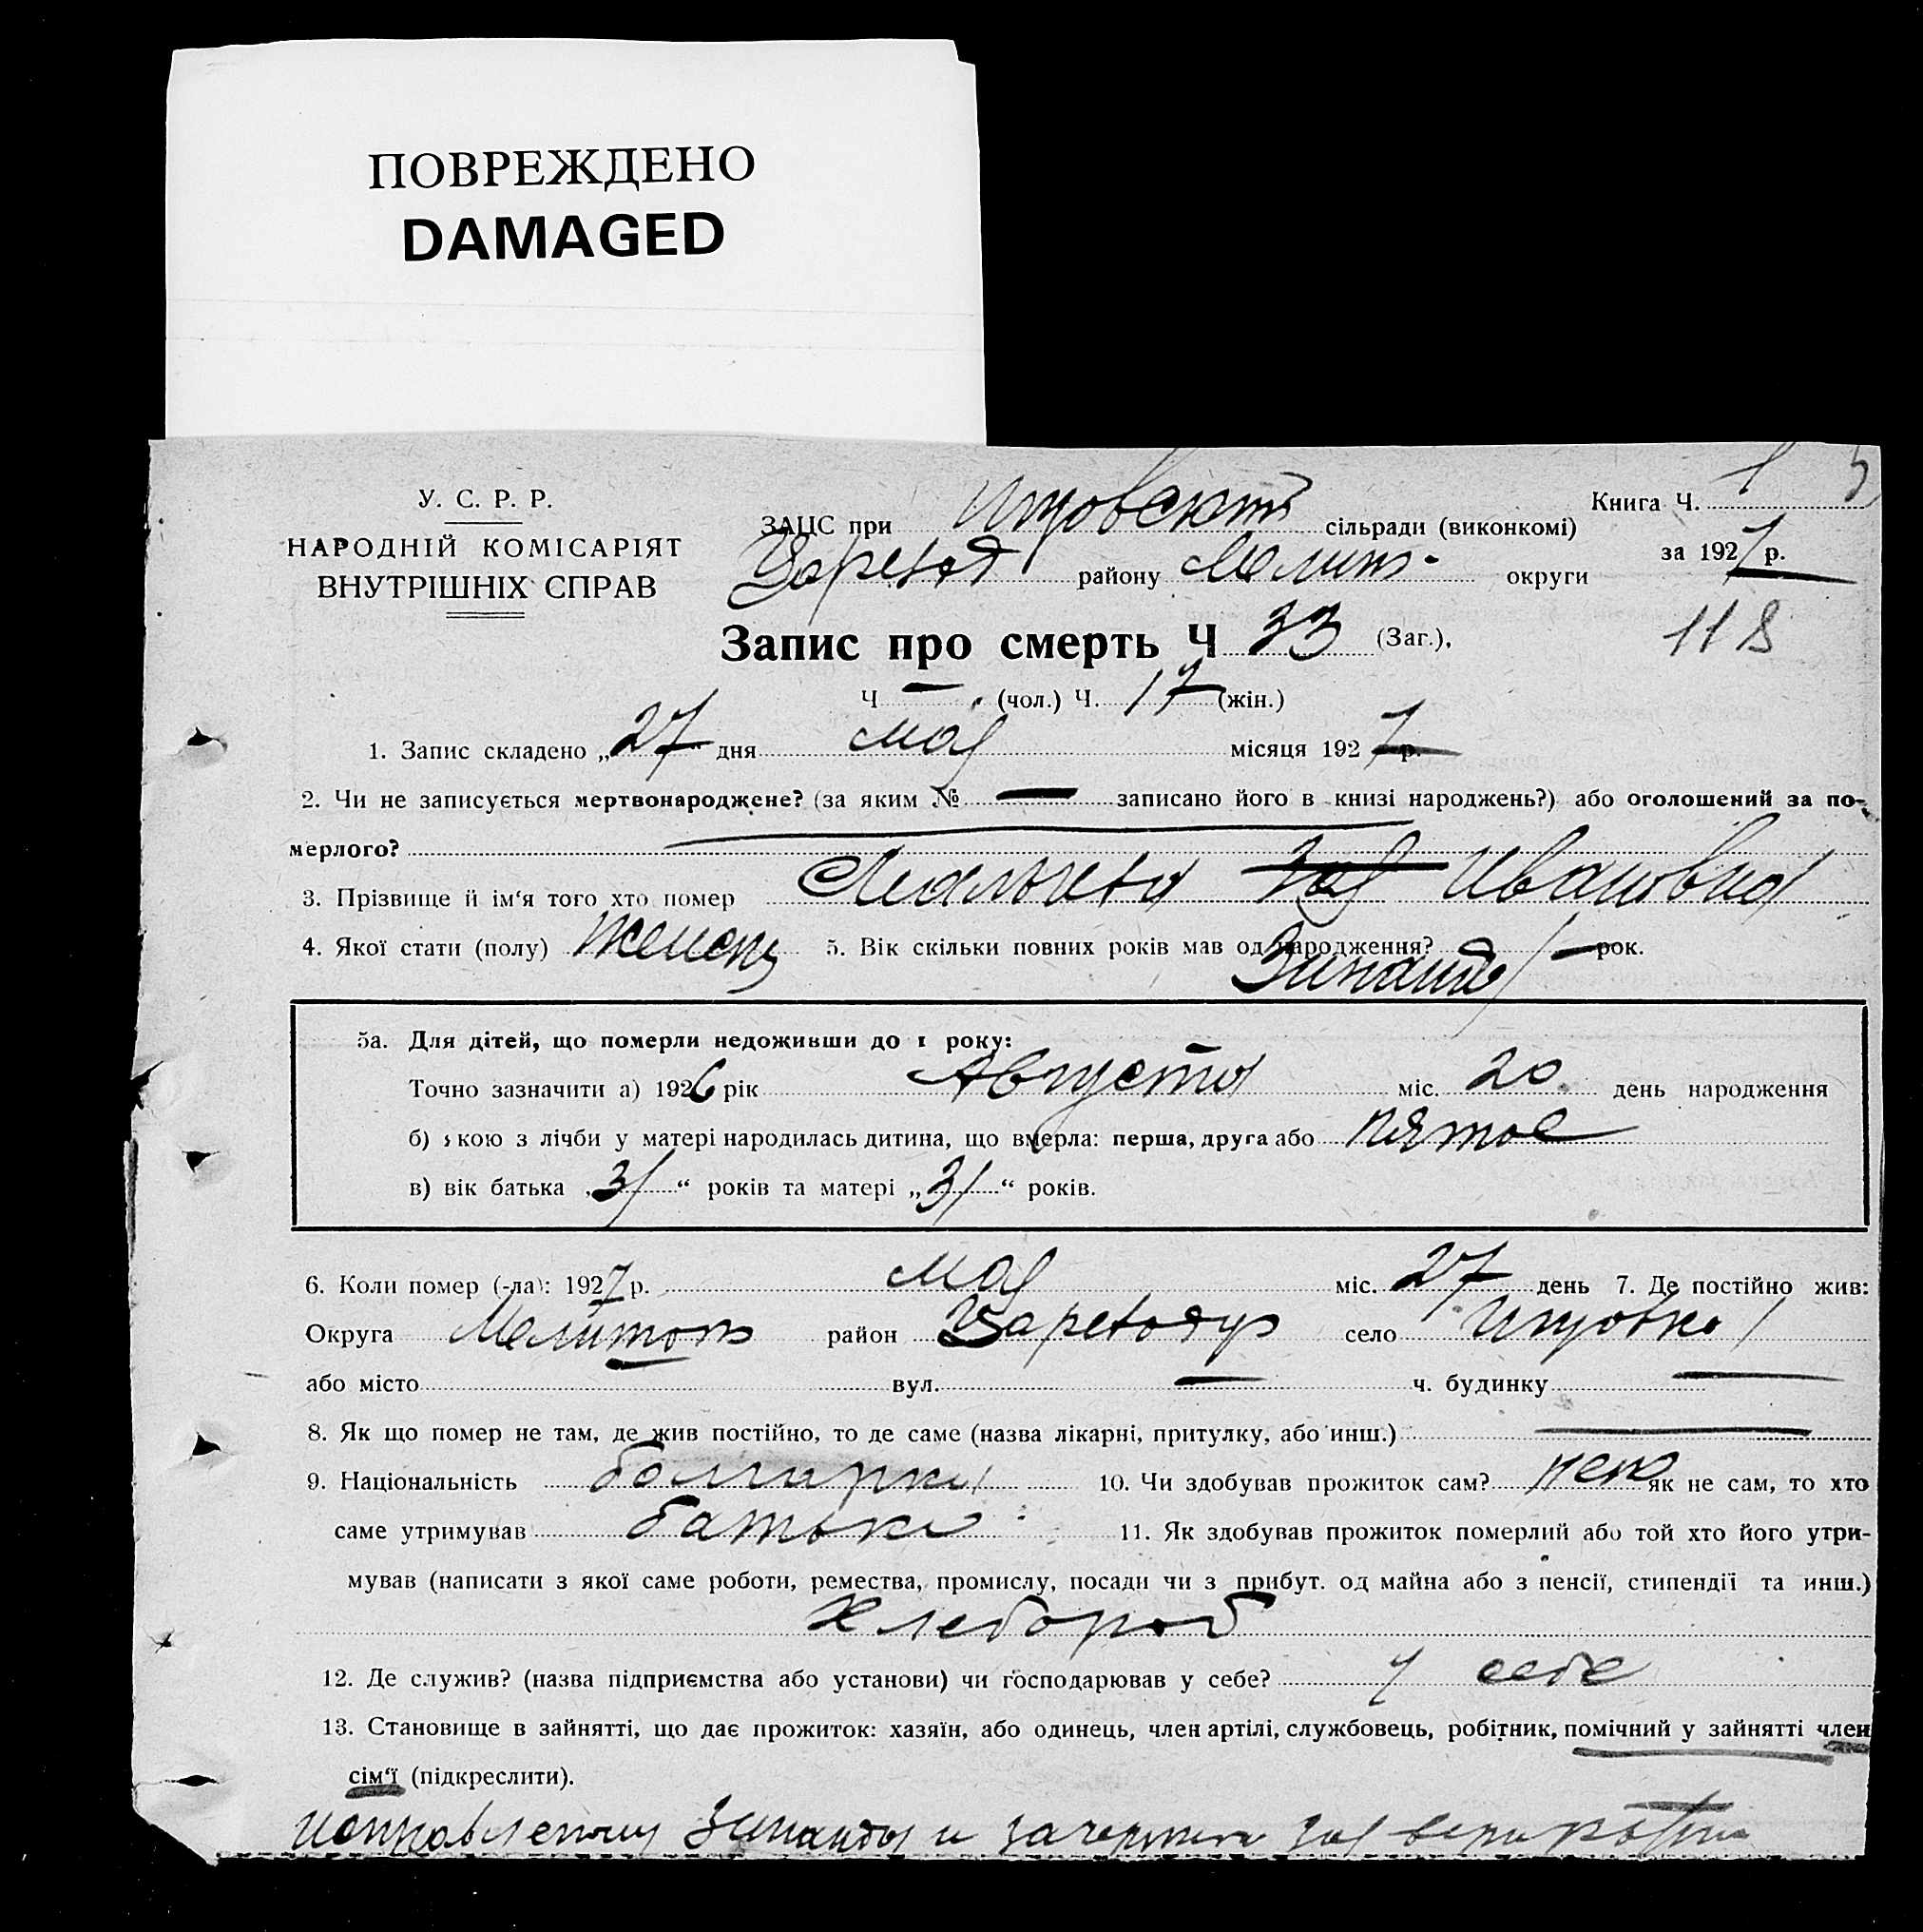 ПОВРЕЖДЕНО
DAMAGED
У. С. Р. Р.
НАРОДНІЙ КОМІСАРІЯТ
ВНУТРІШНІХ СПРАВ
Книга Ч. 1
за 1927 р.
118
ЗАЦС при сільради (виконкомі)
району Мелит. округи
Запис про смерть Ч 33 (Заг.),
Ч — (чол.) Ч. 17 (жін.)
1. Запис складено „27“ дня мая місяця 1927 р.
2. Чи не записується мертвонароджене? (за яким № — записано його в книзі народжень?) або оголошений за по-
мерлого? —
3. Прізвище й ім‘я того хто помер Ивановна
4. Якої стати (полу) Женск 5. Вік скільки повних років мав од народження? — рок.
Зинаида
5а. Для дітей, що померли недоживши до 1 року:
Точно зазначити а) 1926 рік Августа міс. 20 день народження
б) якою з лічби у матері народилась дитина, що вмерла: перша, друга або пятое
в) вік батька „31“ років та матері „31“ років.
6. Коли помер (-ла): 1927 р. мая міс. 27 день 7. Де постійно жив:
Округа Мелитоп район село
або місто вул. — ч. будинку —
8. Як що помер не там, де жив постійно, то де саме (назва лікарні, притулку, або инш.) —
9. Національність болгарка 10. Чи здобував прожиток сам? нет як не сам, то хто
саме утримував батько 11. Як здобував прожиток померлий або той хто його утри-
мував (написати з якої саме роботи, ремества, промислу, посади чи з прибут. од майна або з пенсії, стипендії та инш.)
Хлебороб
12. Де служив? (назва підприємства або установи) чи господарював у себе? у себе
13. Становище в зайнятті, що дає прожиток: хазяїн, або одинець, член артілі, службовець, робітник, помічний у зайнятті член
сім‘ї (підкреслити).
Зинаида и